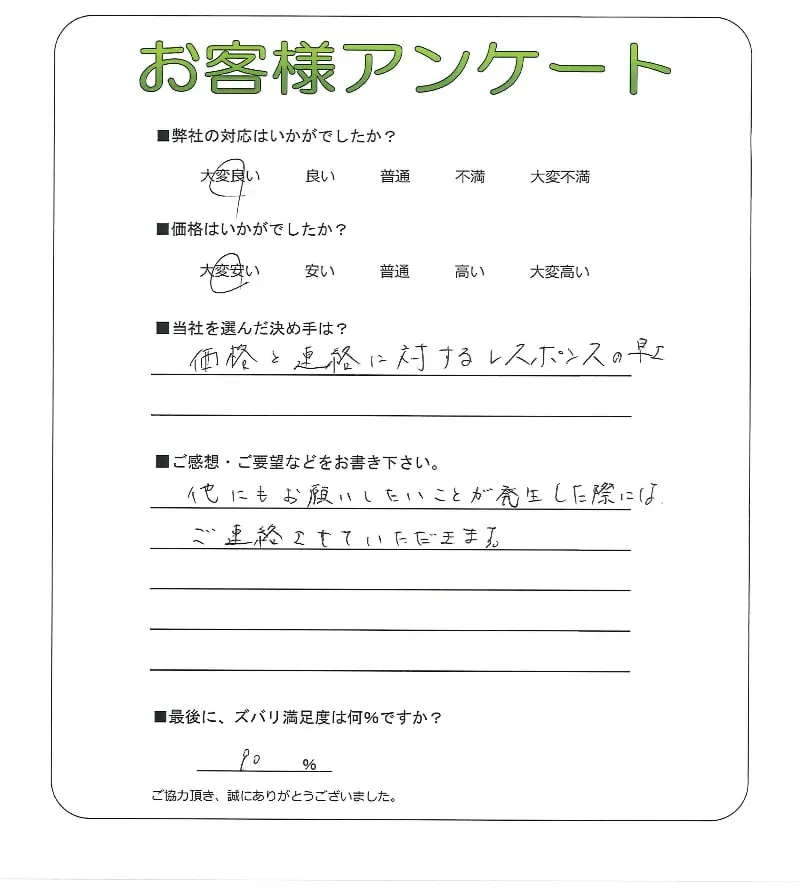 お客様アンケート
■弊社の対応はいかがでしたか？
大変良い 良い 普通 不満 大変不満
■価格はいかがでしたか？
大変安い 安い 普通 高い 大変高い
■当社を選んだ決め手は？
価格と連絡に対するレスポンスの早さ
■ご感想・ご要望などをお書き下さい。
他にもお願いしたいことが発生した際には
ご連絡させていただきます。
■最後に、ズバリ満足度は何%ですか？
90 %
ご協力頂き、誠にありがとうございました。